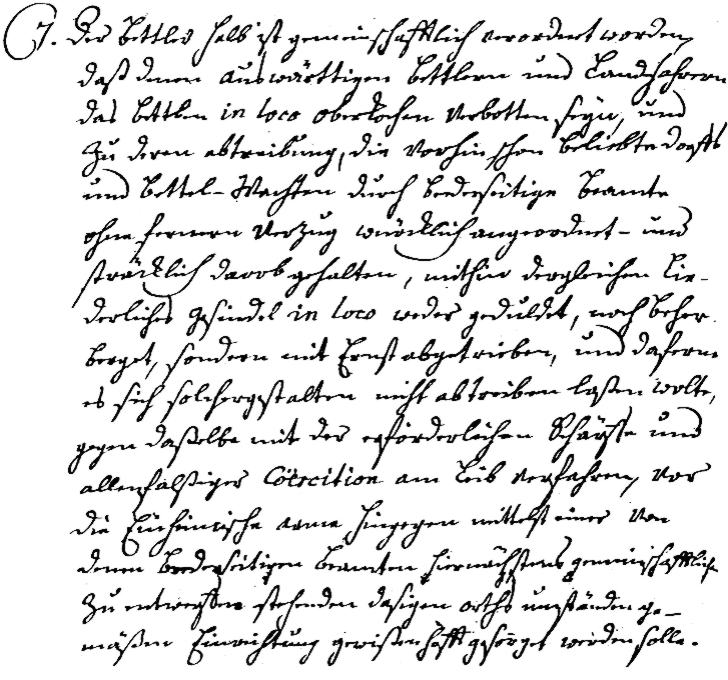 7. Der Bettler halb ist gemeinschafftlich verordnet worden,
daß denen auswärttigen Bettlern und Landfahrern
das bettlen in loco oberkochen verbotten seyn, und
zu deren abtreibung, die vorhin schon beliebte dorffs
und bettel-Wachten durch beederseitige beamte
ohne fernern verzug würcklich angeordnet- und
sträcklich darob gehalten, mithin dergleichen lie-
derliches gesindel in loco weder geduldet, noch beher-
berget, sondern mit Ernst abgetrieben, und daferne
es sich solchergestalten nicht abtreiben laßen wolte,
gegen daßelbe mit der erforderlichen Schärffe und
allenfalßiger Coërcition am leib verfahren, vor
die Einheimische arme hingegen mittelst einer von
denen beederseitigen beamten hiernächstens gemeinschafftlich
zu entwerffen stehenden dasigen orths umständen ge-
mäßen Einrichtung gewißenhafft gesorget werden solle.